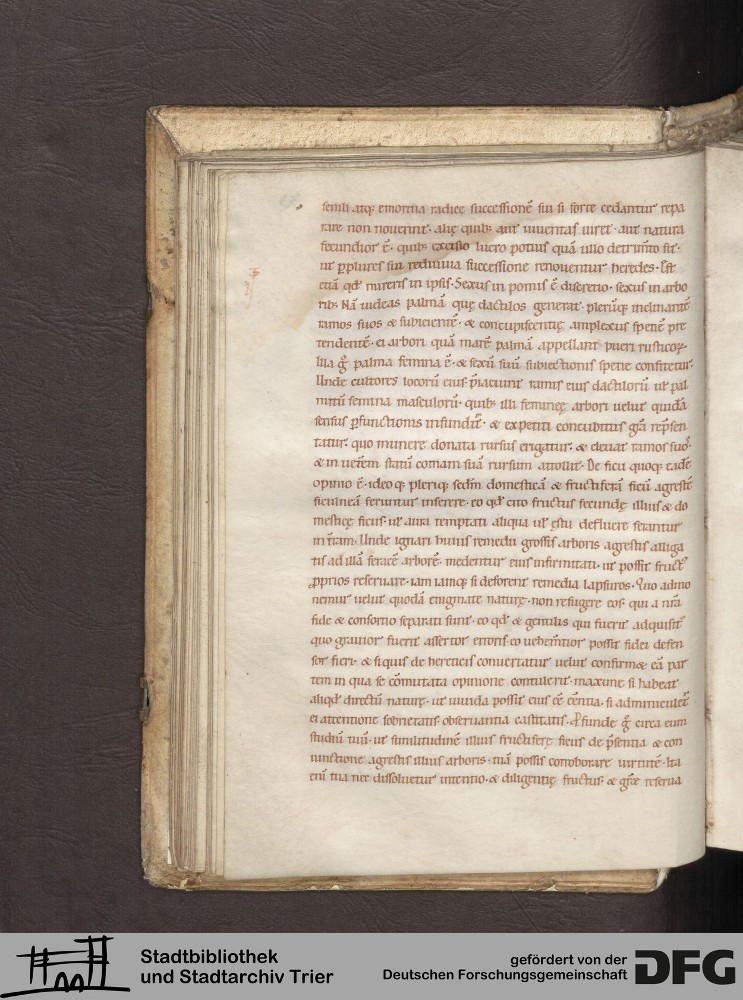 senili atq; emortua radice successionē sui si forte cedantur repa
rare non nouerint. alię quib; aut iuuentas uiret. aut natura
fecundior ē. quib; excisio lucro potius quā ullo detrimto sit.
ut p plures sui rediuiua successione renouentur heredes. Est
etiā qd mireris in ipsis. Sexus in pomis ē discretio. sexus in arbo
rib;. Nā uideas palmā quę dactilos generat. plerūq; inclinantē
ramos suos & subicientē. & concupiscentię amplexus speciē pre
tendentē. ei arbori quā marē palmā appellant pueri rusticoꝝ.
Illa g palma femina ē. & sexū suū subiectionis specie confitetur.
Unde cultores locorū eius p̄iaciunt ramis eius dactilorū ut pal
mitū semina masculorū. quib; illi feminę arbori uelut quidā
sensus pfunctionis infundit. & expetiti concubitus grā repsen
tatur. quo munere donata rursus erigatur. & eleuat ramos suos.
& in ueterem statū comam suā rursum attollit. De ficu quoq; eadē
opinio ē. ideoq; plerīq; secdm domesticā & fructiferā ficū agrestē
ficulneā feruntur inserere. eo qd cito fructus fecundę illius & do
mesticę ficus uel aura temptati aliqua uel ęstu defluere ferantur
in trām. Unde ignari huius remedii grossis arboris agrestis alliga
tis ad illā feracē arborē. medentur eius infirmitati. ut possit fruct
pprios reseruare. iam iamq; si deforent remedia lapsuros. Quo admo
nemur uelut quodā enigmate naturę. non refugere eos. qui a nrā
fide & consortio separati sunt. eo qd & gentilis qui fuerit adquisit
quo grauior fuerit assertor erroris. eo uehemtior possit fidei defen
sor fieri. & si quis de hereticis conuertatur uelut confirm& eā par
tem in qua se cōmutata opinione contulerit. maxime si habeat
aliqd directū naturę. ut uiuida possit eius eē cētentia. si adminiculet
ei attentione sobrietatis. obseruantia castitatis. Pfunde g circa eum
studiū tuū. ut similitudinē illius fructiferę ficus de p̄sentia & con
iunctione agrestis illius arboris. tuā possis corroborare uirtutē. Ita
enī tua nec dissoluetur intentio. & diligentię fructus. & grę reserua
Stadtbibliothek
und Stadtarchiv Trier
gefördert von der
Deutschen Forschungsgemeinschaft
DFG